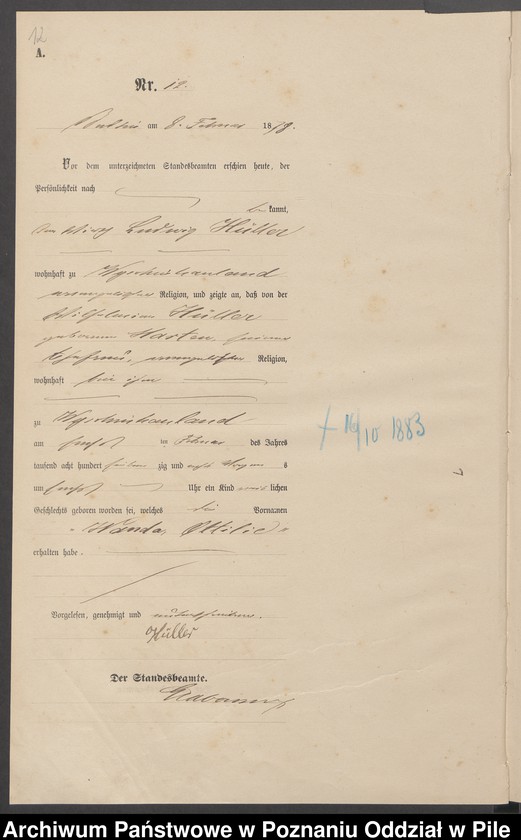 12
A.
Nr. 12.
am 8. Februar 1879.
Vor dem unterzeichneten Standesbeamten erschien heute, der
Persönlichkeit nach
be kannt,
der Wirth Ludwig Hüller
wohnhaft zu
evangelischer Religion, und zeigte an, daß von der
Wilhelmine Hüller
geborenen Marten, seiner
Ehefrau, evangelischer Religion,
wohnhaft bei ihm
zu
am fünf im Februar des Jahres
tausend acht hundert sieben zig und Morgen s
um fünf Uhr ein Kind weib lichen
Geschlechts geboren worden sei, welches die Vornamen
"Wanda, Ottilie"
erhalten habe.
Vorgelesen, genehmigt und unterschrieben.
Hüller
Der Standesbeamte.
+ 16/10 1883
Archiwum Państwowe w Poznaniu Oddział w Pile